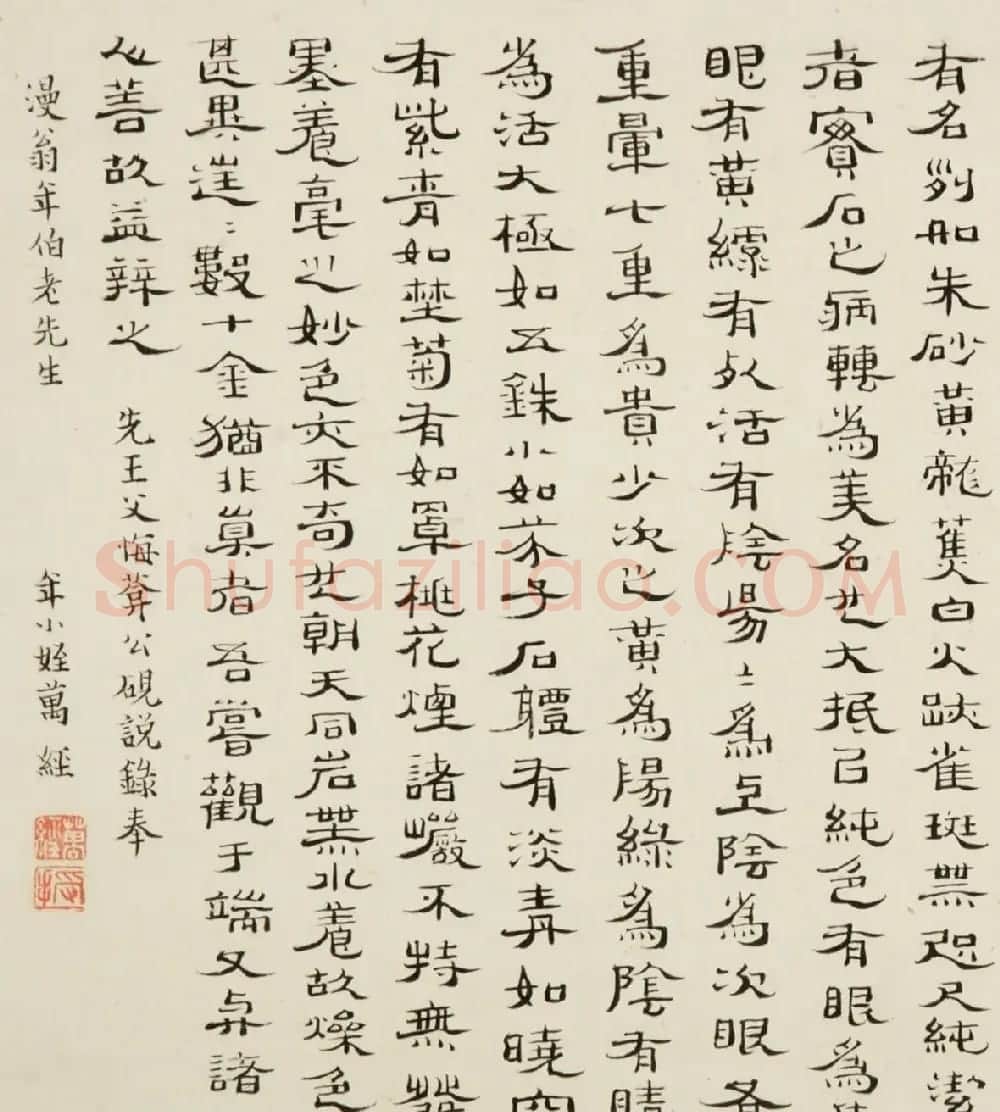 有名列朱砂黃龍蕉白火䟴雀斑無咫尺純潔
者實石之病轉為美名也大抵以純色有眼為
眼有黃有死活有陰陽〻為上陰為次眼各
重暈七重為貴少次之黃為陽綠為陰有睛
為活大極如五銖小如芥子石體有淡青如曉空
有紫青如埜菊有如罩桃花煙諸巖不特無發
墨養毫之妙色亦不奇也朝天同岩無水養故燥色
甚異往〻數十金猶非真者吾嘗觀于端又与諸
心善故益辯之 先王父悔菴公硯說錄奉
漫翁年伯老先生 年小姪萬經
萬經
shufaziliao.COM